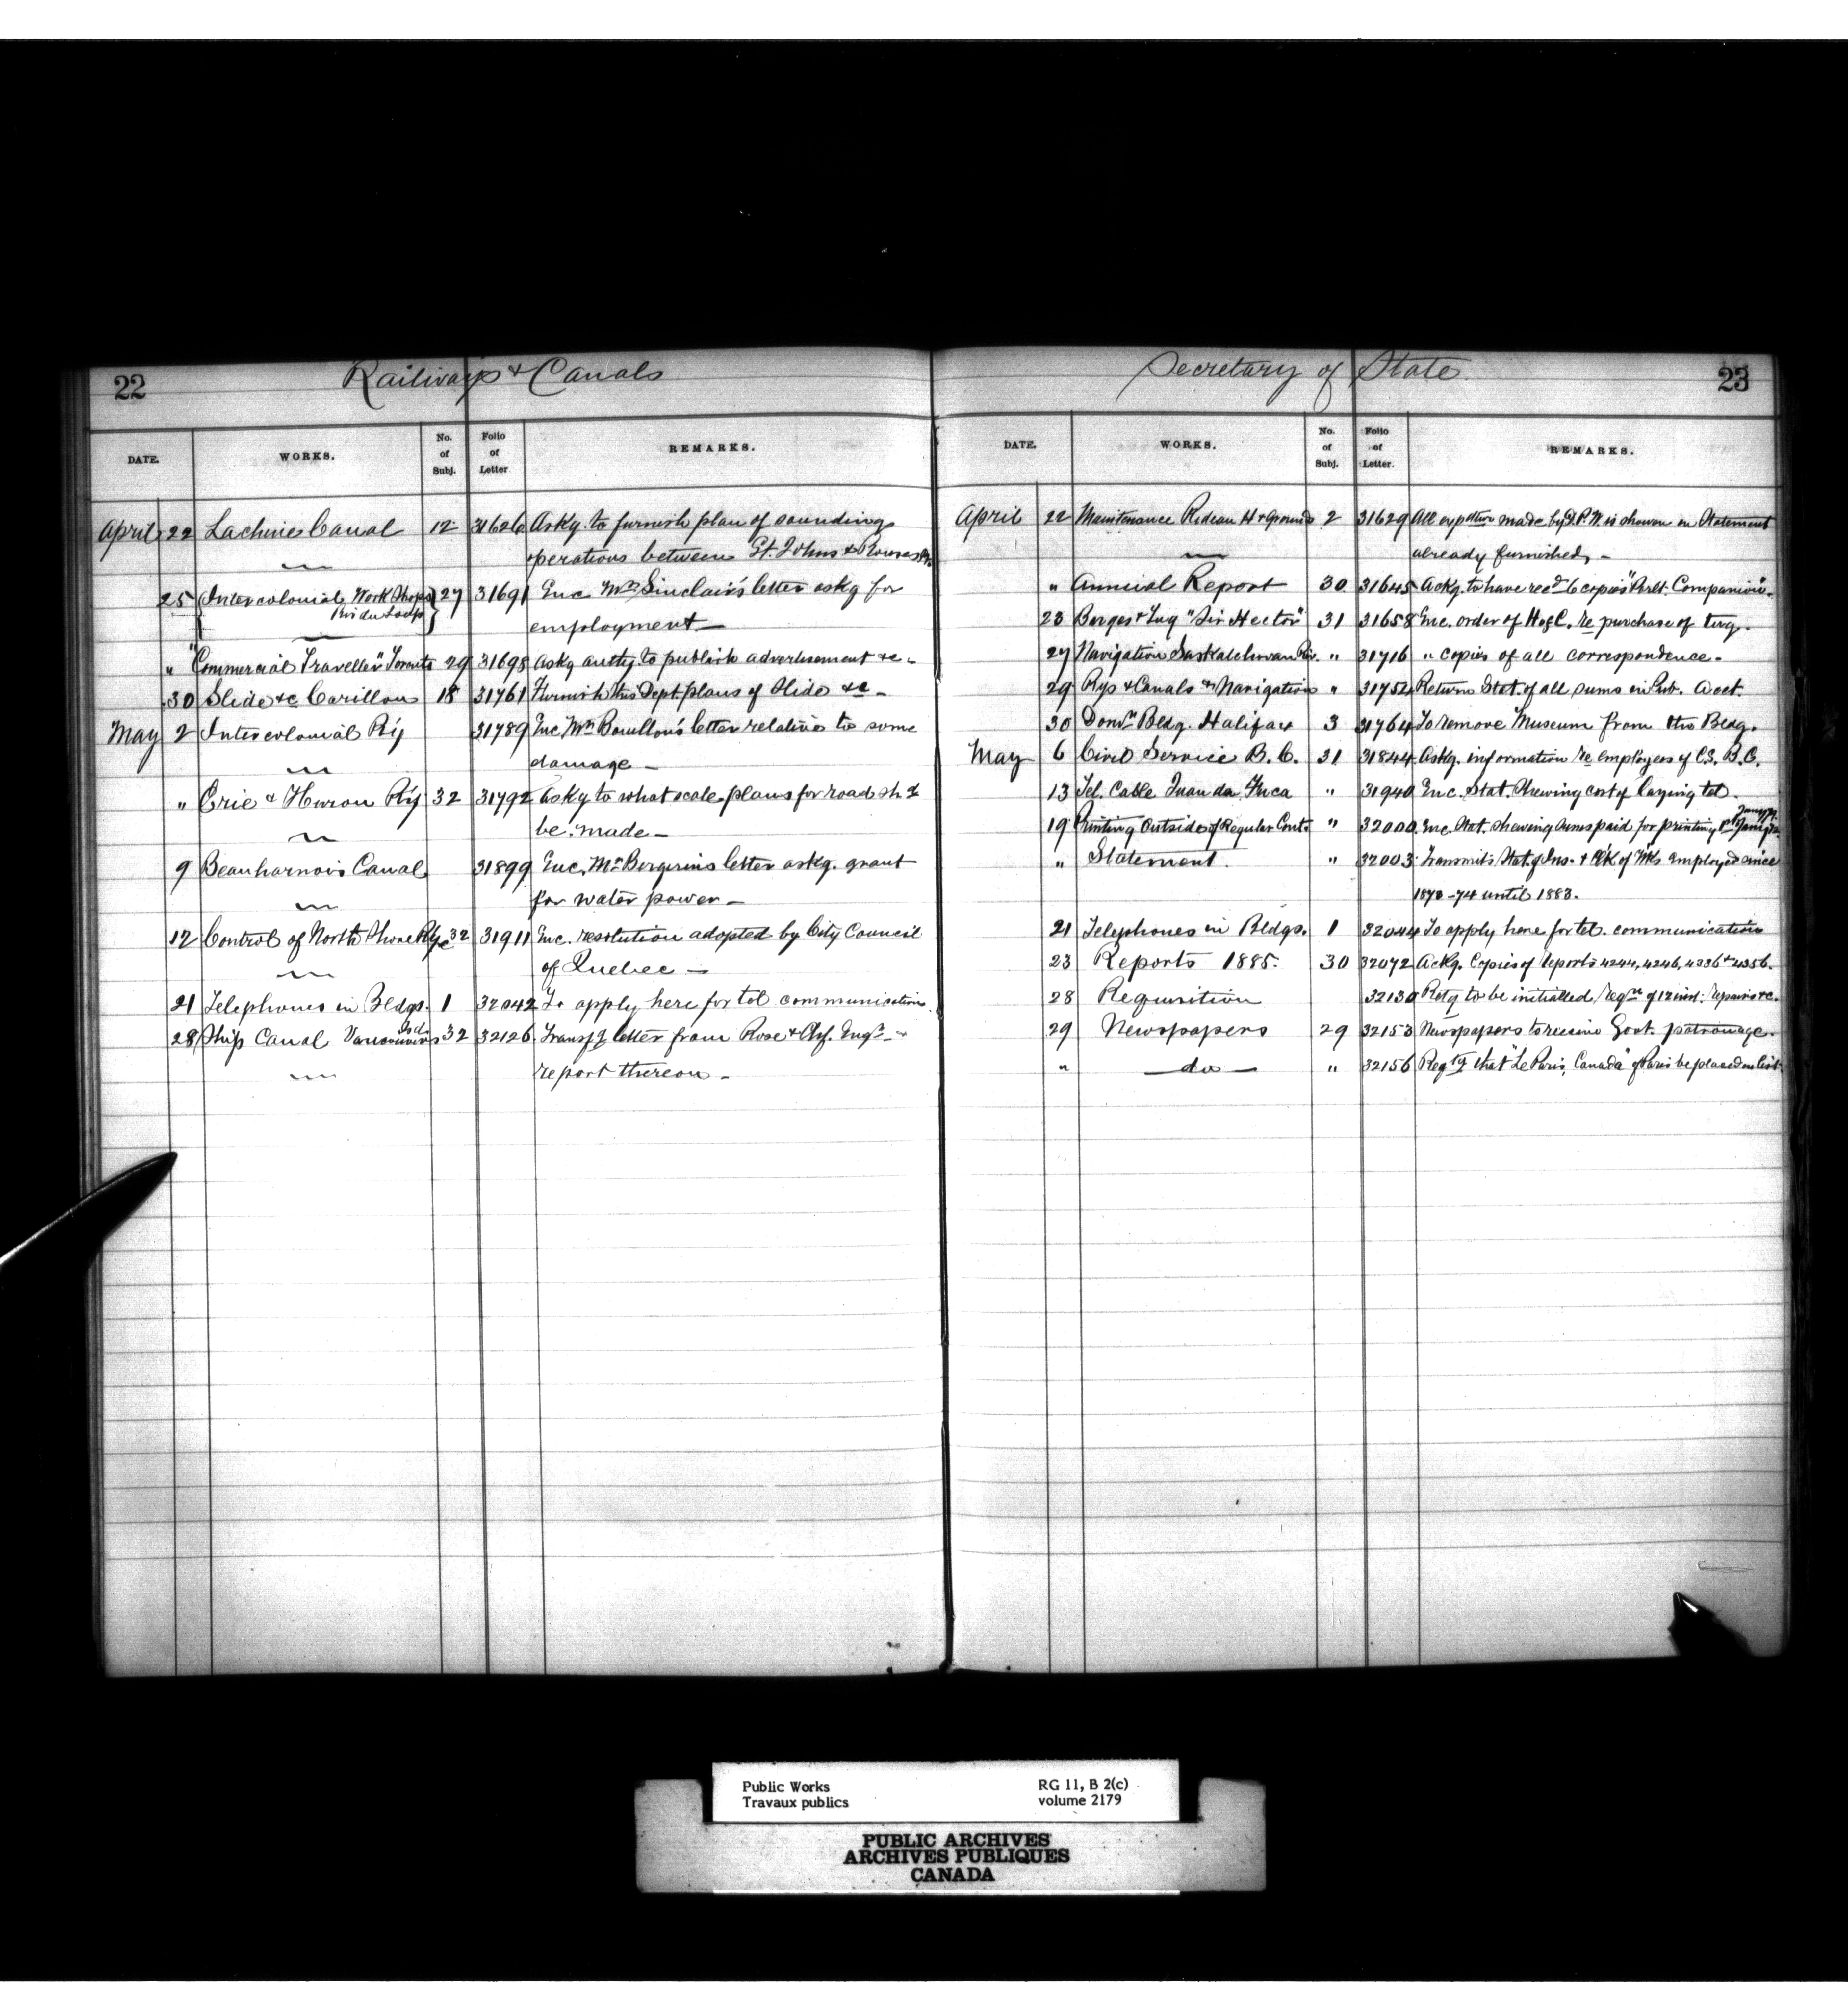 22 Railways & Canals
DATE. WORKS. No. of Subj. Folio of Letter. REMARKS.
April 22 Lachine Canal 12 31626 Askg. to furnish plan of soundings
operations between St. Johns & Rouses Pt.
25 Intercolonial Work Shops Riv du Loup 27 31691 Enc. Mrs Sinclair's letter askg for
employment —
" "Commercial Traveller" Toronto 29 31698 Askg authy. to publish advertisement &c -
30 Slide &c Carillon 18 31761 Furnish this Dept. plans of Slide &c -
May 2 Intercolonial Ry 31789 Enc. letter relative to some
damage —
" Erie & Huron Ry 32 31792 Askg to what scale plans for road shd
be made —
9 Beauharnois Canal 31899 Enc. Mr Bergerins letter askg. grant
for water power —
12 Control of North Shore Ry 32 31911 Enc. resolution adopted by City Council
of Quebec —
21 Telephones in Bldgs. 1 32042 To apply here for tel communication.
28 Ship Canal Vancouvers Isd. 32 32126 Transfg letter from Rose & Chf. Engr -
report thereon -
Secretary of State 23
DATE. WORKS. No. of Subj. Folio of Letter. REMARKS.
April 22 Maintenance Rideau H & Grounds 2 31629 All made by D.P.W. is shown in Statement
already furnished, -
" Annual Report 30 31645 Ackg. to have recd 6 copies "Parlt. Companion".
23 Barges & Tug "Sir Hector" 31 31658 Enc. order of H of C. re purchase of tug.
27 Navigation Saskatchewan Riv. " 31716 " copies of all correspondence -
29 Rys & Canals & Navigation " 31754 Return Stat. of all sums in Pub. Acct.
30 Domn Bldg. Halifax 3 31764 To remove Museum from the Bldg.
May 6 Civil Service B.C. 31 31844 Askg. information re employees of C.S. B.C.
13 Tel. Cable Juan da Fuca " 31940 Enc. Stat. Shewing cost of laying tel.
19 Printing Outside of Regular Cont. " 32000 Enc. Stat. shewing sums paid for printing
" Statement. " 32003 Transmits Stat. of Ins. & Clk of Wks employed since
1873-74 until 1883.
21 Telephones in Bldgs. 1 32044 To apply here for tel. communication
23 Reports 1885. 30 32072 Ackg. Copies of reports 4244, 4246, 4336 & 4356.
28 Requisition 32130 Retg to be initialled reqn of 12 inst: repairs &c.
29 Newspapers 29 32153 Newspapers to receive Govt. patronage.
" — do — " 32156 Reqtg that "Le Paris, Canada" of Paris be placed on list.
Public Works RG 11, B 2(c)
Travaux publics volume 2179
PUBLIC ARCHIVES
ARCHIVES PUBLIQUES
CANADA